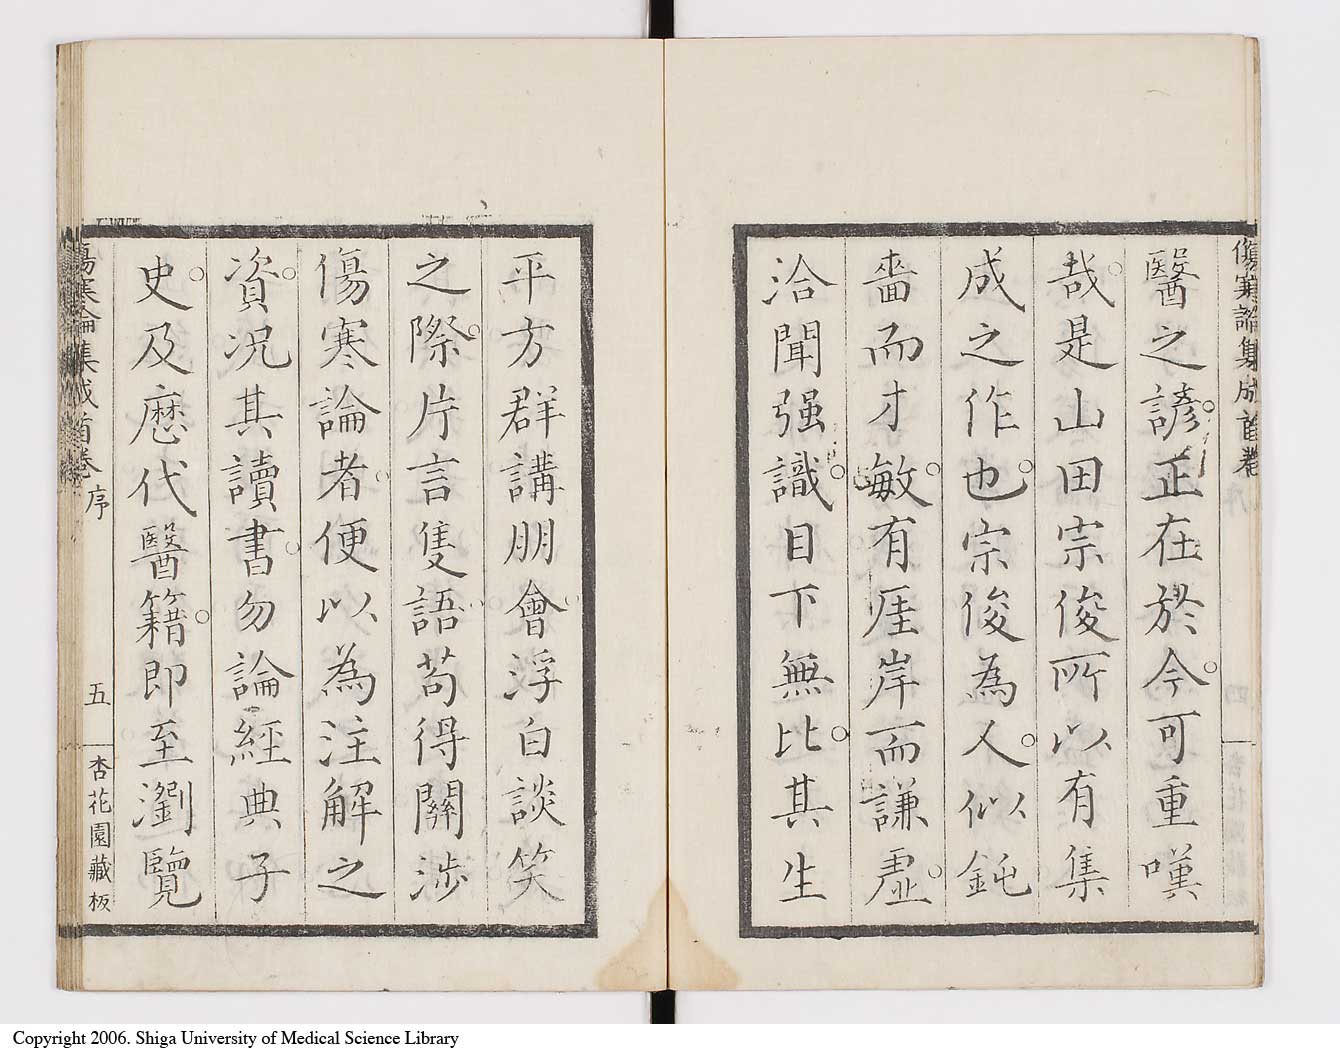 傷寒論集成首卷
醫之諺正在於今可重嘆
哉是山田宗俊所以有集
成之作也宗俊為人似鈍
嗇而才敏有厓岸而謙虛
洽聞强識目下無比其生
平方群講朋會浮白談笑
之際片言隻語苟得關涉
傷寒論者便以為注解之
資况其讀書勿論經典子
史及歷代醫籍即至瀏覽
傷寒論集成首卷 序 五 杏花園藏板
Copyright 2006. Shiga University of Medical Science Library